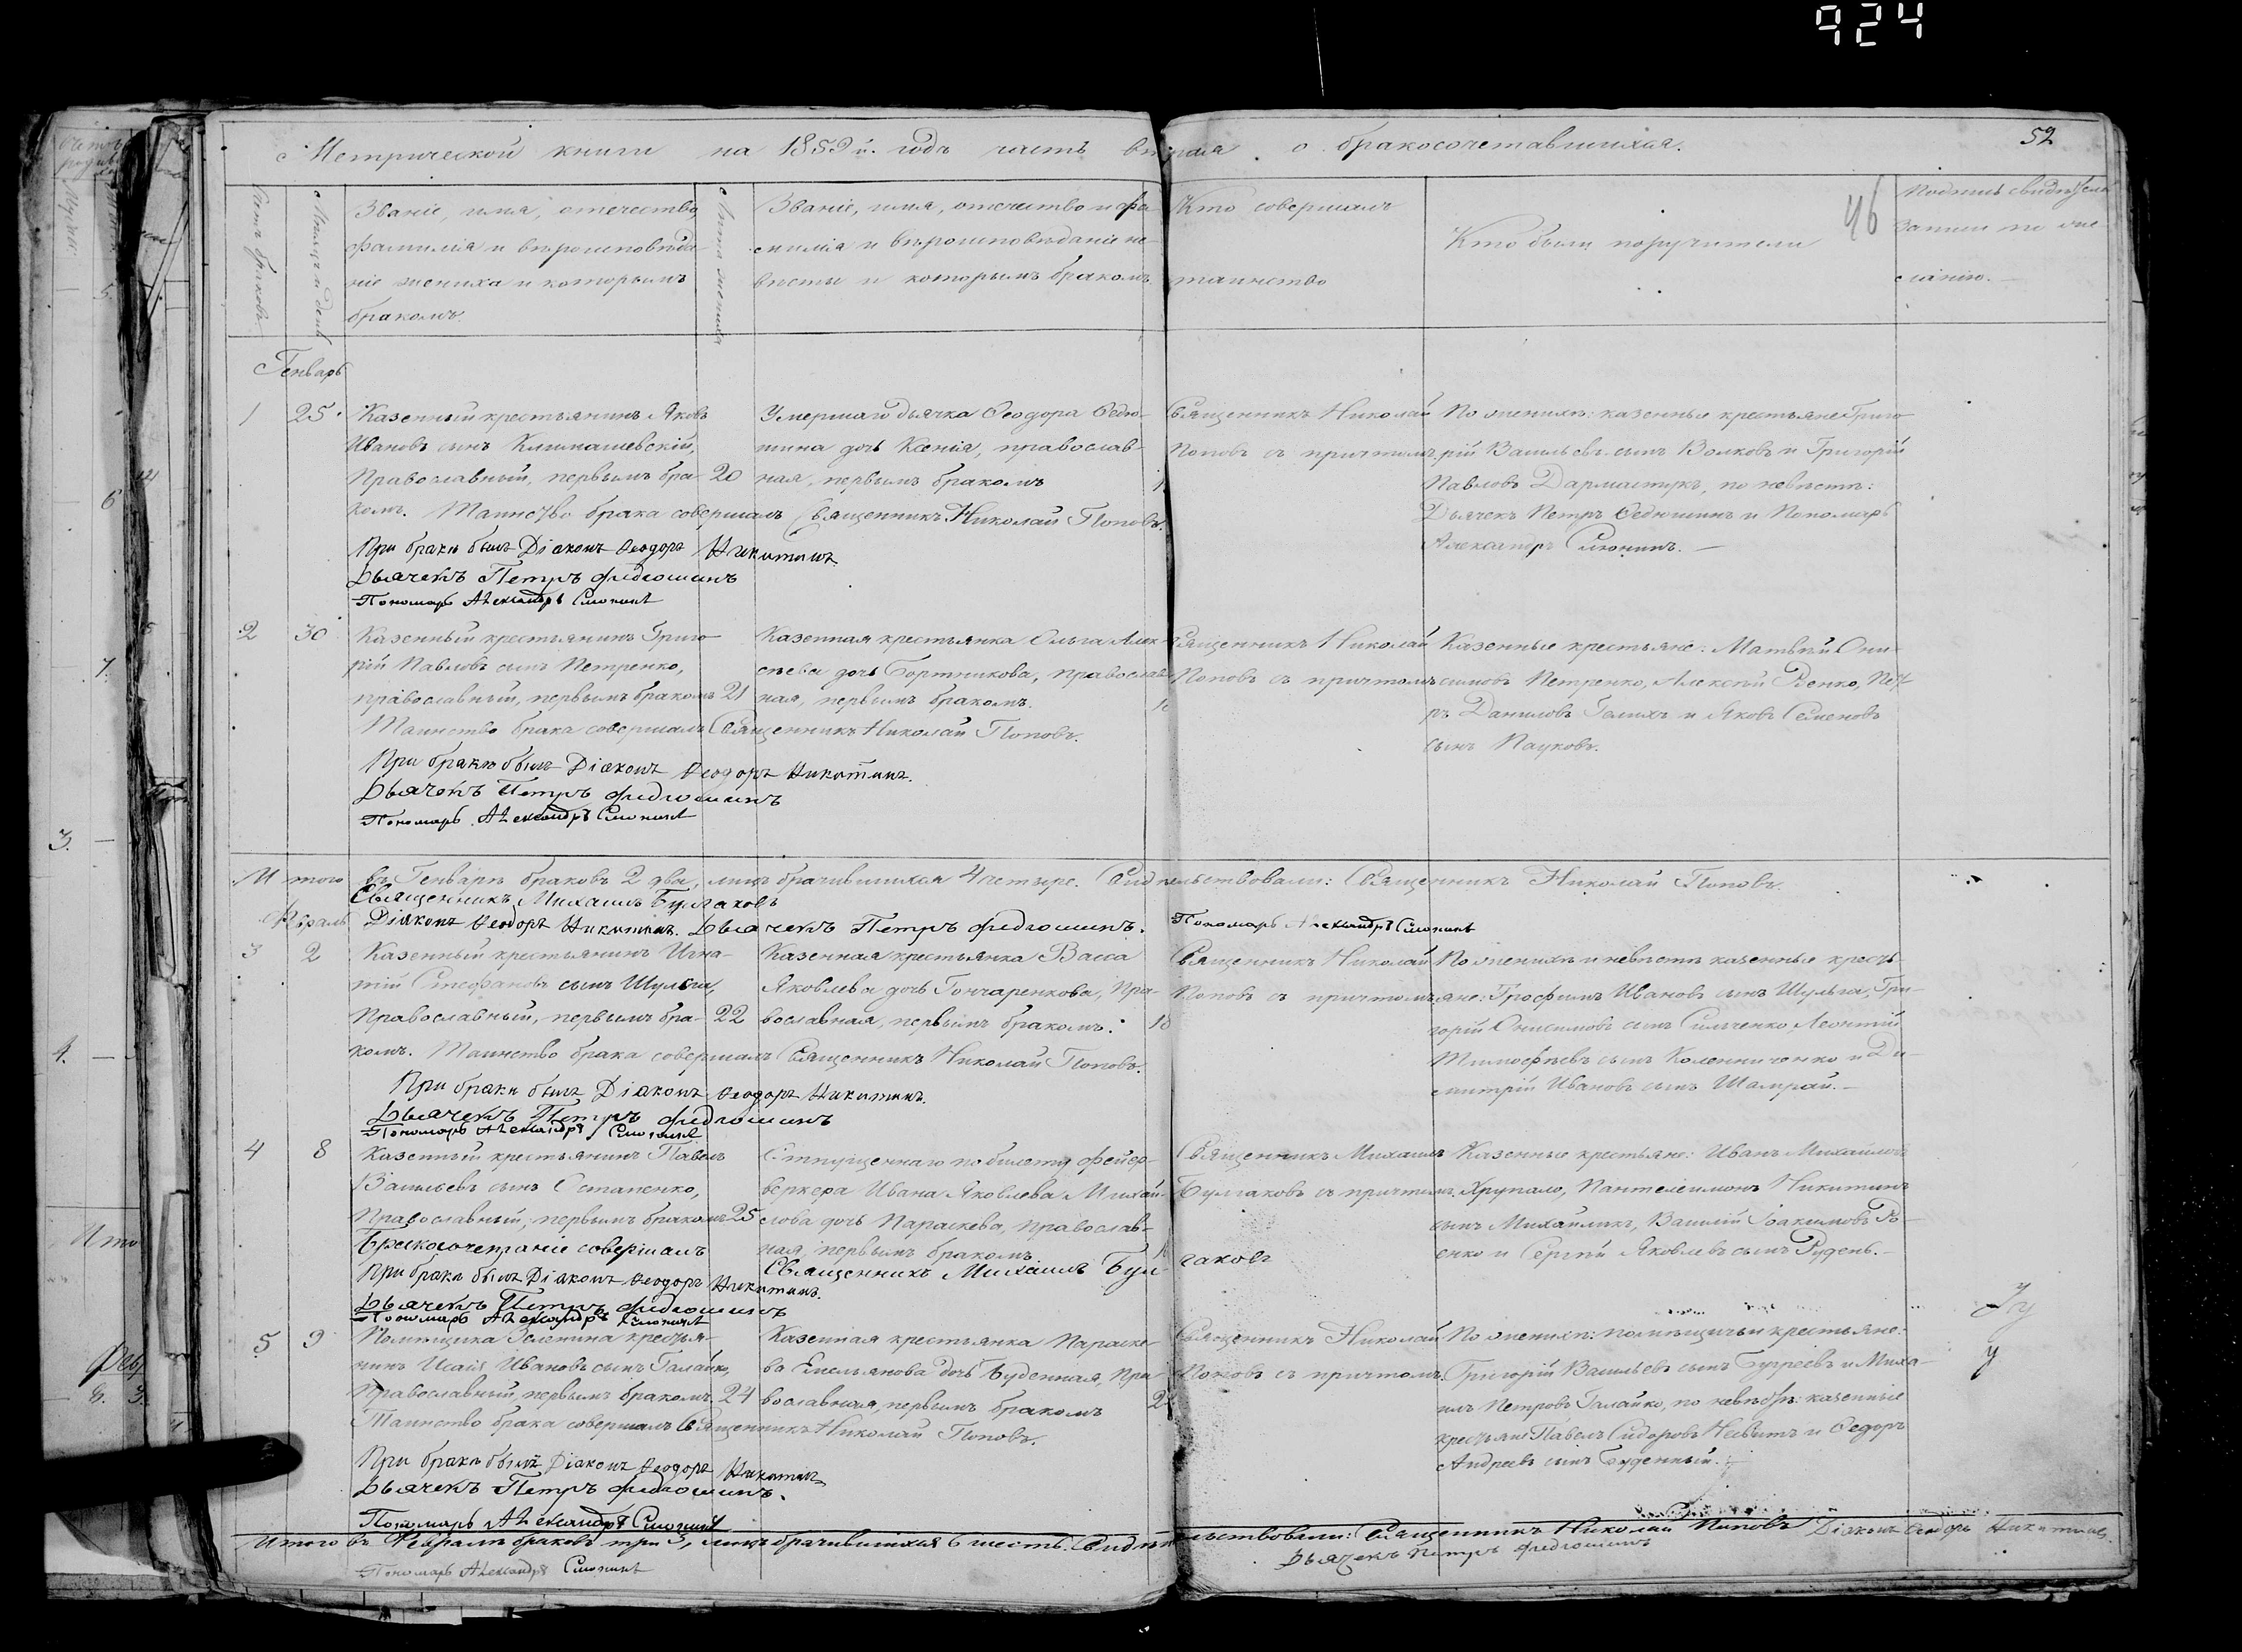 924
Метрической книги на 1859й. годъ часть вторая о бракосочетавшихся.
52
46
Счетъ браковъ
Мѣсяцъ и день
Званіе, имя, отечество
фамилія и вѣроисповѣда-
ніе жениха и которымъ
бракомъ.
Лѣта жениха
Званіе, имя, отечество и фа-
милія и вѣроисповѣданіе не-
вѣсты и которымъ бракомъ
Кто совершалъ
таинство
Кто были поручители
Подпись свидѣтелей
записи по же-
ланію.
Генварь
1 25.
Казенный крестьянинъ Яковъ
Ивановъ сынъ Климашевскій,
Православный, первымъ бра- 20
комъ. Таинство брака совершалъ Священникъ Николай Поповъ.
При бракѣ былъ Діаконъ Ѳеодоръ Никитинъ.
Дьячекъ Петръ Федюшинъ
Пономарь Александръ
Умершаго дьячка Ѳеодора Ѳедю-
шина дочь Ксенія, православ-
ная, первымъ бракомъ
Священникъ Николай
Поповъ съ причтомъ
По женихѣ: казенные крестьяне Григо-
рій Васильевъ сынъ Волковъ и Григорій
Павловъ Дармастукъ, по невѣстѣ:
Дьячекъ Петръ Ѳедюшинъ и Пономарь
Александръ
2 30
Казенный крестьянинъ Григо-
рій Павловъ сынъ Петренко,
православный, первымъ бракомъ 21
Таинство брака совершалъ Священникъ Николай Поповъ.
При бракѣ былъ Діаконъ Ѳеодоръ Никитинъ.
Дьячекъ Петръ Федюшинъ
Пономарь Александръ
Казенная крестьянка Ольга Алек-
сѣева дочь Бортникова, православ-
ная, первымъ бракомъ.
Священникъ Николай
Поповъ съ причтомъ
Казенные крестьяне: Матвѣй Они-
симовъ Петренко, Алексѣй Пет-
ръ Даниловъ и Яковъ Семеновъ
сынъ Пауковъ.
Итого въ Генварѣ браковъ 2 два, лицъ брачившихся 4 четыре. Свидѣтельствовали: Священникъ Николай Поповъ.
Священникъ Михаилъ Булгаковъ
Діаконъ Ѳеодоръ Никитинъ. Дьячекъ Петръ Федюшинъ. Пономарь Александръ
Февраль
3 2
Казенный крестьянинъ Игна-
тій Стефановъ сынъ Шульга,
Православный, первымъ бра- 22
комъ. Таинство брака совершалъ Священникъ Николай Поповъ.
При бракѣ былъ Діаконъ Ѳеодоръ Никитинъ.
Дьячекъ Петръ Федюшинъ
Пономарь Александръ
Казенная крестьянка Васса
Яковлева дочь Гончаренкова, Пра-
вославная, первымъ бракомъ. 18
Священникъ Николай
Поповъ съ причтомъ
По женихѣ и невѣстѣ казенные кресть-
яне: Трофимъ Ивановъ сынъ Шульга, Гри-
горій Онисимовъ сынъ Сильченко Леонтій
Тимофѣевъ сынъ Коленниченко и Ди-
митрій Ивановъ сынъ Шамрай.
4 8
Казенный крестьянинъ Павелъ
Васильевъ сынъ Остапенко,
Православный, первымъ бракомъ 25
Бракосочетаніе совершалъ
При бракѣ былъ Діаконъ Ѳеодоръ Никитинъ.
Дьячекъ Петръ Федюшинъ
Пономарь Александръ
Отпущеннаго по билету фейер-
веркера Ивана Яковлева Михай-
лова дочь Параскева, православ-
ная, первымъ бракомъ
Священникъ Михаилъ Булгаковъ
Священникъ Михаилъ
Булгаковъ съ причтомъ.
Казенные крестьяне: Иванъ Михайловъ
Хрупало, Пантелеимонъ Никитинъ
сынъ Михайликъ, Василій Іоакимовъ Ро-
енко и Сергѣй Яковлевъ сынъ Рудень.
5 9
Помѣщика Зеленина крестья-
нинъ Исаія Ивановъ сынъ Галайко,
Православный, первымъ бракомъ. 24
Таинство брака совершалъ Священникъ Николай Поповъ.
При бракѣ былъ Діаконъ Ѳеодоръ Никитинъ
Дьячекъ Петръ Федюшинъ.
Пономарь Александръ
Казенная крестьянка Параске-
ва Емельянова дочь Буденная, Пра-
вославная, первымъ бракомъ
Священникъ Николай
Поповъ съ причтомъ.
По женихѣ: помѣщичьи крестьяне:
Григорій Васильевъ сынъ Бугреевъ и Миха-
илъ Петровъ Галайко, по невѣстѣ: казенные
крестьяне Павелъ Сидоровъ и Ѳедоръ
Андреевъ сынъ Буденный.
Итого въ Февралѣ браковъ три 3, лицъ брачившихся 6 шесть. Свидѣтельствовали: Священникъ Николай Поповъ Діаконъ Ѳеодоръ Никитинъ
Дьячекъ Петръ Федюшинъ
Пономарь Александръ